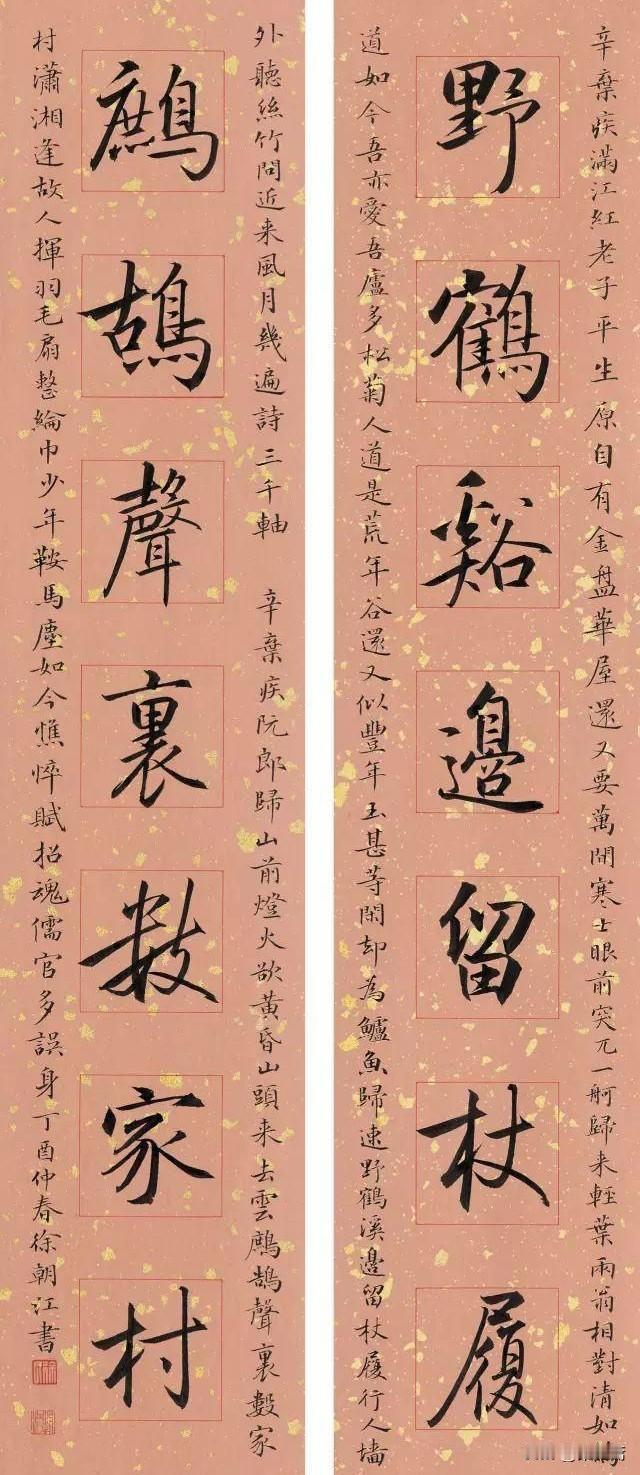 辛棄疾滿江紅老子平生原自有金盤華屋還又要萬間寒士眼前突兀一舸歸来輕葉兩翁相對清如
野鶴谿邊留杖履
道如今吾亦愛吾廬多松菊人道是荒年谷還又似豐年玉甚等閑却為鱸魚歸速野鶴溪邊留杖履行人墻
外聽絲竹問近来風月幾遍詩三千軸 辛棄疾阮郎歸山前燈火欲黃昏山頭来去雲鷓鴣聲裏數家
鷓鴣聲裏數家村
村瀟湘逢故人揮羽毛扇整綸巾少年鞍馬塵如今憔悴賦招魂儒官多誤身丁酉仲春徐朝江書